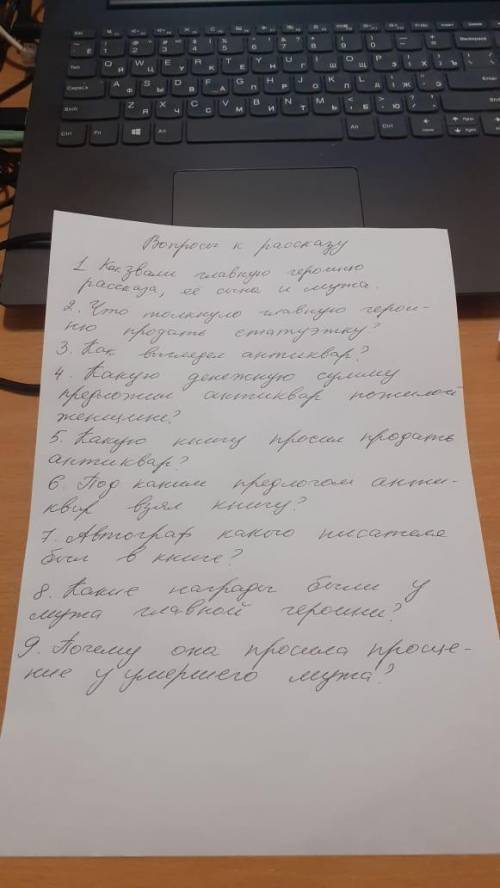 Вопросы к рассказу
1. Как звали главную героиню
рассказа, её сына и мужа.
2. Что толкнуло главную герои-
ню продать статуэтку?
3. Как выглядел антиквар?
4. Какую денежную сумму
предложил антиквар пожилой
женщине?
5. Какую книгу просил продать
антиквар?
6. Под каким предлогом анти-
квар взял книгу?
7. Автограф какого писателя
был в книге?
8. Какие награды были у
мужа главной героини?
9. Почему она просила проще-
ние у умершего мужа?